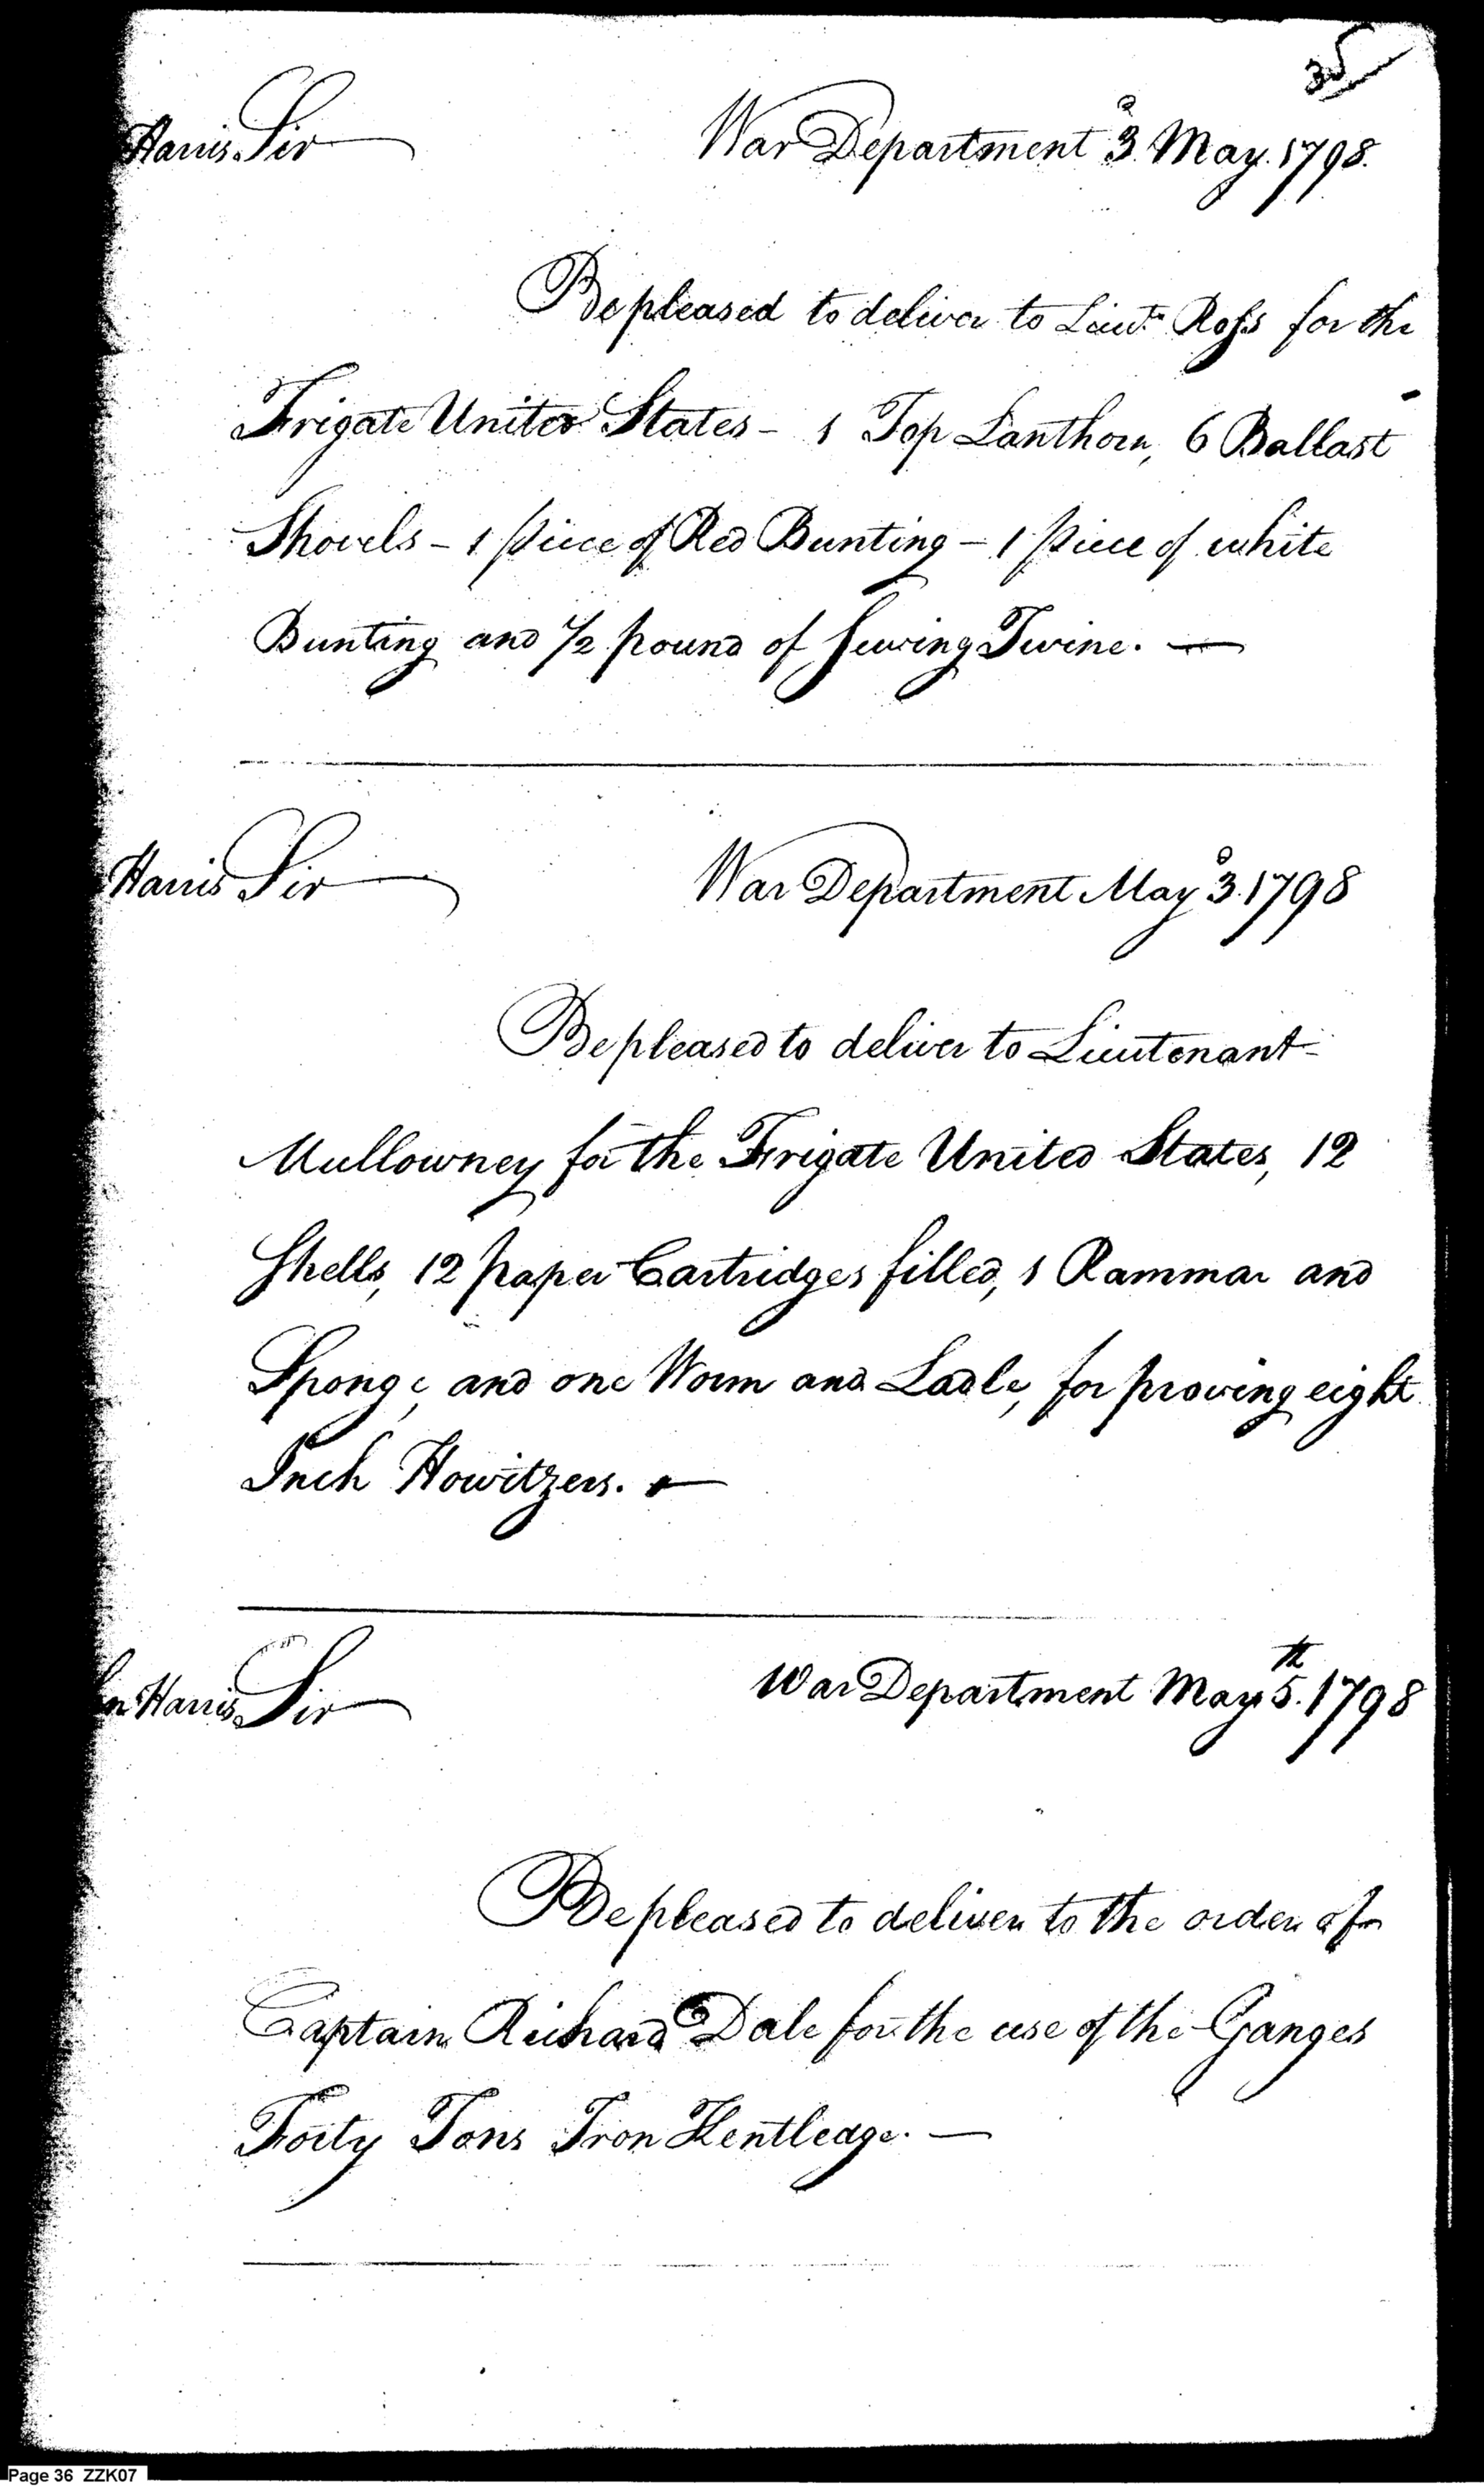 35
Harris Sir War Department 3d May. 1798.
Be pleased to deliver to Lieut. Ross for the
Frigate United States - 1 Top Lanthorn, 6 Ballast
Shovels - 1 piece of Red Bunting - 1 piece of white
Bunting and 1/2 pound of sewing Twine. —
Harris Sir War Department May 3d. 1798
Be pleased to deliver to Lieutenant
Mullowney for the Frigate United States, 12
Shells, 12 paper Cartridges filled, 1 Rammar and
Sponge, and one Worm and Ladle, for proving eight
Inch Howitzers. —
hn Harris Sir War Department May 5th. 1798
Be pleased to deliver to the order of
Captain Richard Dale for the use of the Ganges
Forty Tons Iron Kentledge. —
Page 36 ZZK07